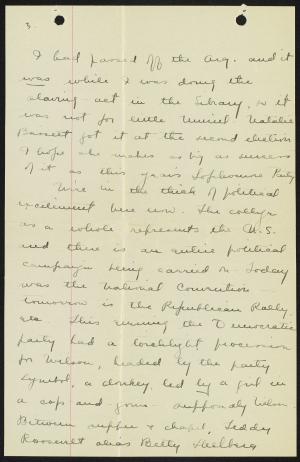 3.
I had passed off the Arg. and it
was while I was doing the
slaving act in the Library, so it
was not for little Muriel. Natalie
Bassett got it at the second election
I hope she makes as big as success
of it as this year's Sophomore Party
We're in the thick of political
excitement here now. The college
as a whole represents the U.S.
and there is an entire political
campaign being carried on. Today
was the National Convention
tomorrow is the Republican Rally,
etc. This evening the Democratic
party had a torchlight procession
for Wilson, headed by the party
symbol, a donkey, led by a girl in
a cap and gown - supposedly Wilson.
Between supper & chapel, Teddy
Roosevelt alias Betty